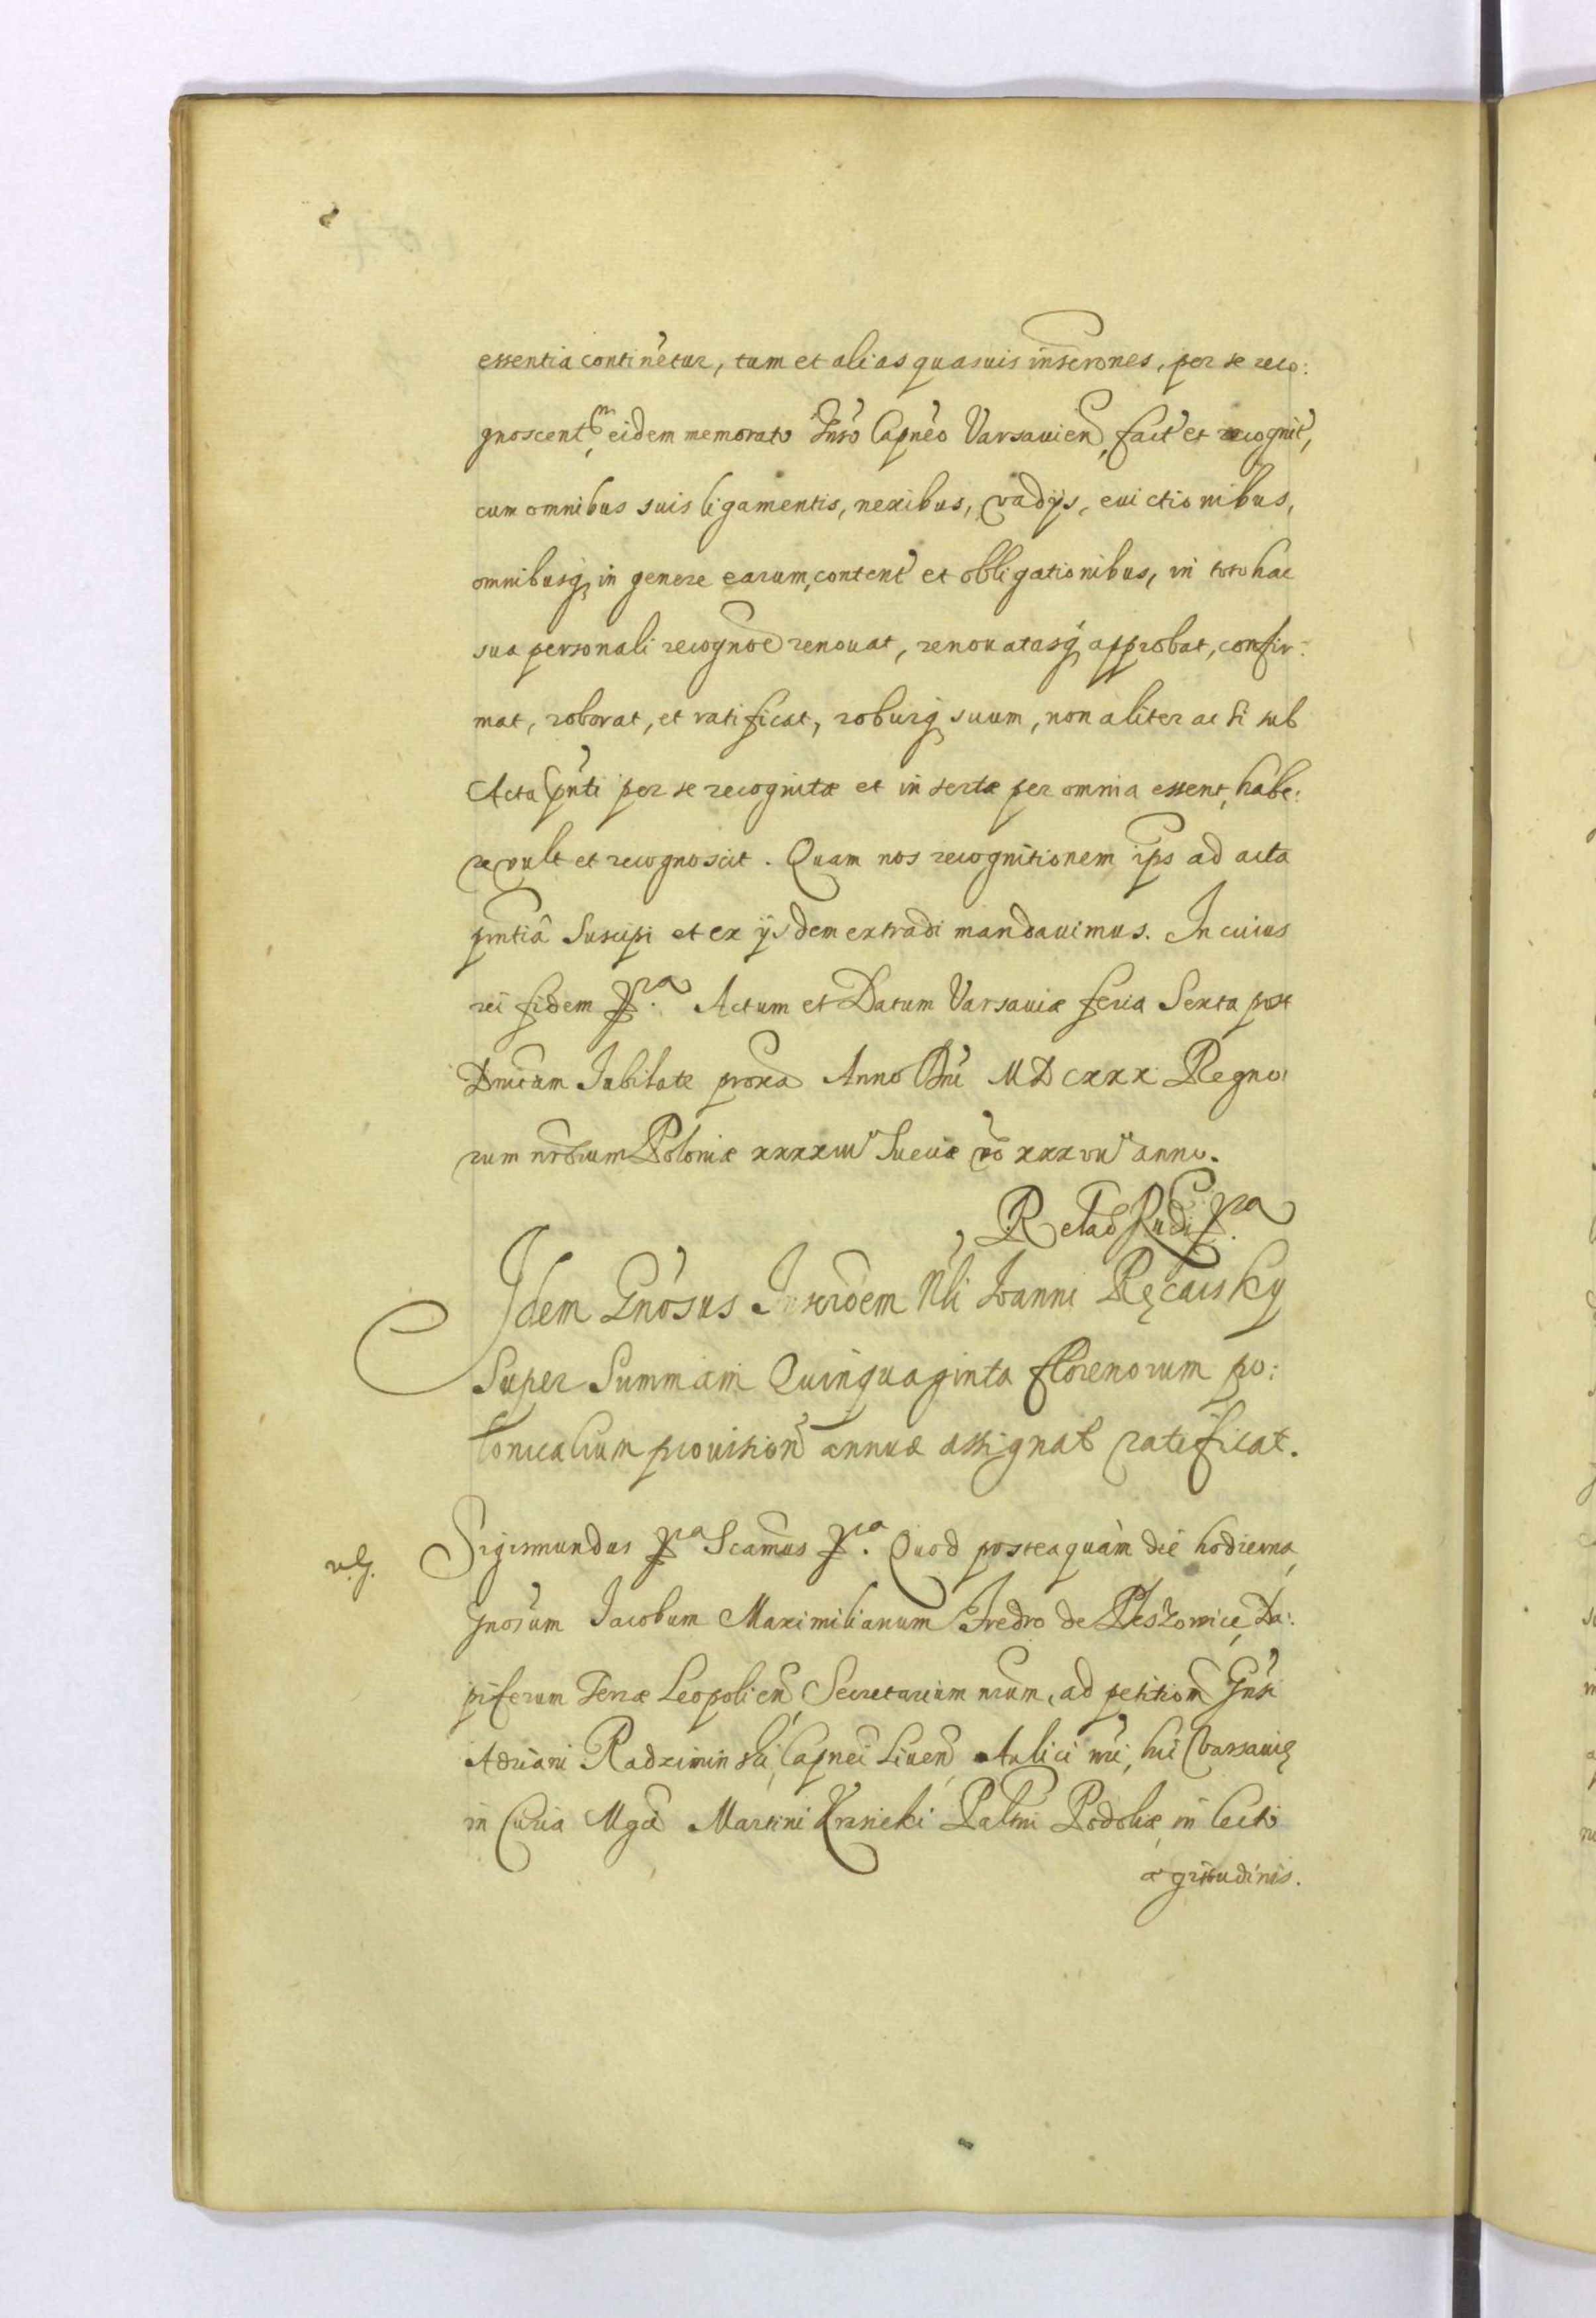 essentia continetur, tum et alias quasuis inscrones, per se reco:
gnoscentem, eidem memorato Gnso Capneo Varsauien, fact et recognit,
cum omnibus suis ligamentis, nexibus, vadijs, euictionibus,
omnibusq, in genere earum, content et obligationibus, in toto hac
sua personali recogne renouat, renouatasq, approbat, confir-
mat, roborat, et ratificat, roburq, suum, non aliter ac si sub
Acta pnti per se recognitæ et insertæ per omnia essent, habe:
re vult et recognoscit. Quam nos recognitionem ips ad acta
pntia suscipi et ex ijsdem extradi mandauimus. In cuius
rei fidem pra. Actum et Datum Varsauiæ feria Sexta post
Dnicam Jubilate proxa Anno Dni MDCXXX Regno:
rum nrorum Poloniæ xxxxiii Sueciæ vo xxxvii anno.
Relao Rudi pra
Idem Gnosus Inscroem Nli Ioanni Ręcaisky
Super Summam Quinquaginta florenorum po:
lonicalium prouision annuæ assignat ratificat.
v. g. Sigismundus pra Scamus pra. Quod posteaquàm die hodierna,
Gnosum Jacobum Maximilianum Fredro de Pleszowice, Da:
piferum Terræ Leopolien, Secretarium nrum, ad petition Gnsi
Adriani Radziminski, Capnei Liuen, Aulici nri, hic Varsauię
in Curia Mgci Martini Krasicki Paltni Podoliæ, in lecto
ægritudinis.